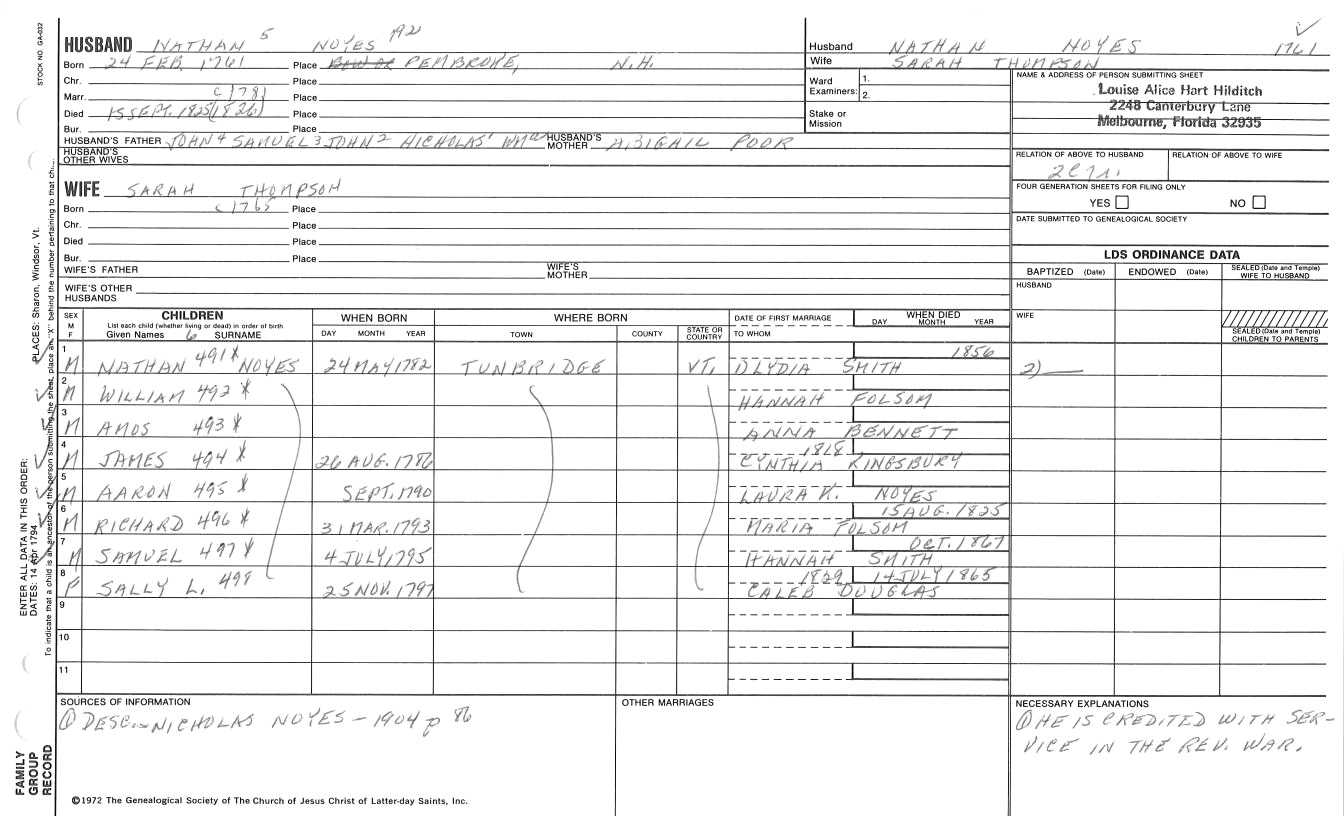 STOCK NO. GA-032
PLACES: Sharon, Windsor, Vt.
To indicate that a child is an ancestor of the person submitting the sheet, place an "X" behind the number pertaining to that ch...
ENTER ALL DATA IN THIS ORDER:
DATES: 14 Apr 1794
FAMILY GROUP RECORD
HUSBAND NATHAN 5 NOYES 192
Born 24 FEB. 1761 Place PEMBROKE, N.H.
Chr. Place
Marr. C 1781 Place
Died 15 SEPT. 1825 (1826) Place
Bur. Place
HUSBAND'S FATHER JOHN 4 SAMUEL 3 JOHN 2 NICHOLAS 1 HUSBAND'S MOTHER ABIGAIL POOR
HUSBAND'S OTHER WIVES
WIFE SARAH THOMPSON
Born C 1765 Place
Chr. Place
Died Place
Bur. Place
WIFE'S FATHER WIFE'S MOTHER
WIFE'S OTHER HUSBANDS
Husband NATHAN NOYES 1761
Wife SARAH THOMPSON
Ward Examiners: 1.
2.
Stake or Mission
NAME & ADDRESS OF PERSON SUBMITTING SHEET
Louise Alice Hart Hilditch
2248 Canterbury Lane
Melbourne, Florida 32935
RELATION OF ABOVE TO HUSBAND RELATION OF ABOVE TO WIFE
FOUR GENERATION SHEETS FOR FILING ONLY
YES NO
DATE SUBMITTED TO GENEALOGICAL SOCIETY
LDS ORDINANCE DATA
BAPTIZED (Date) ENDOWED (Date) SEALED (Date and Temple) WIFE TO HUSBAND
HUSBAND
WIFE
SEALED (Date and Temple) CHILDREN TO PARENTS
SEX M F CHILDREN WHEN BORN WHERE BORN DATE OF FIRST MARRIAGE WHEN DIED
List each child (whether living or dead) in order of birth
Given Names 6 SURNAME DAY MONTH YEAR TOWN COUNTY STATE OR COUNTRY TO WHOM DAY MONTH YEAR
1 M NATHAN 491 X NOYES 24 MAY 1782 TUNBRIDGE VT. 1856
LYDIA SMITH 2)
2 M WILLIAM 492 X HANNAH FOLSOM
3 M AMOS 493 X ANNA BENNETT
4 M JAMES 494 X 26 AUG. 1786 1818 CYNTHIA KINGSBURY
5 M AARON 495 X SEPT. 1790 LAURA K. NOYES
6 M RICHARD 496 X 31 MAR. 1793 15 AUG. 1825
MARIA FOLSOM
7 M SAMUEL 497 X 4 JULY 1795 OCT. 1867
HANNAH SMITH
8 F SALLY L. 498 25 NOV. 1797 1829 14 JULY 1865
CALEB DOUGLAS
9
10
11
SOURCES OF INFORMATION
① DESC. NICHOLAS NOYES - 1904 p 86
OTHER MARRIAGES
NECESSARY EXPLANATIONS
① HE IS CREDITED WITH SER-
VICE IN THE REV. WAR.
©1972 The Genealogical Society of The Church of Jesus Christ of Latter-day Saints, Inc.